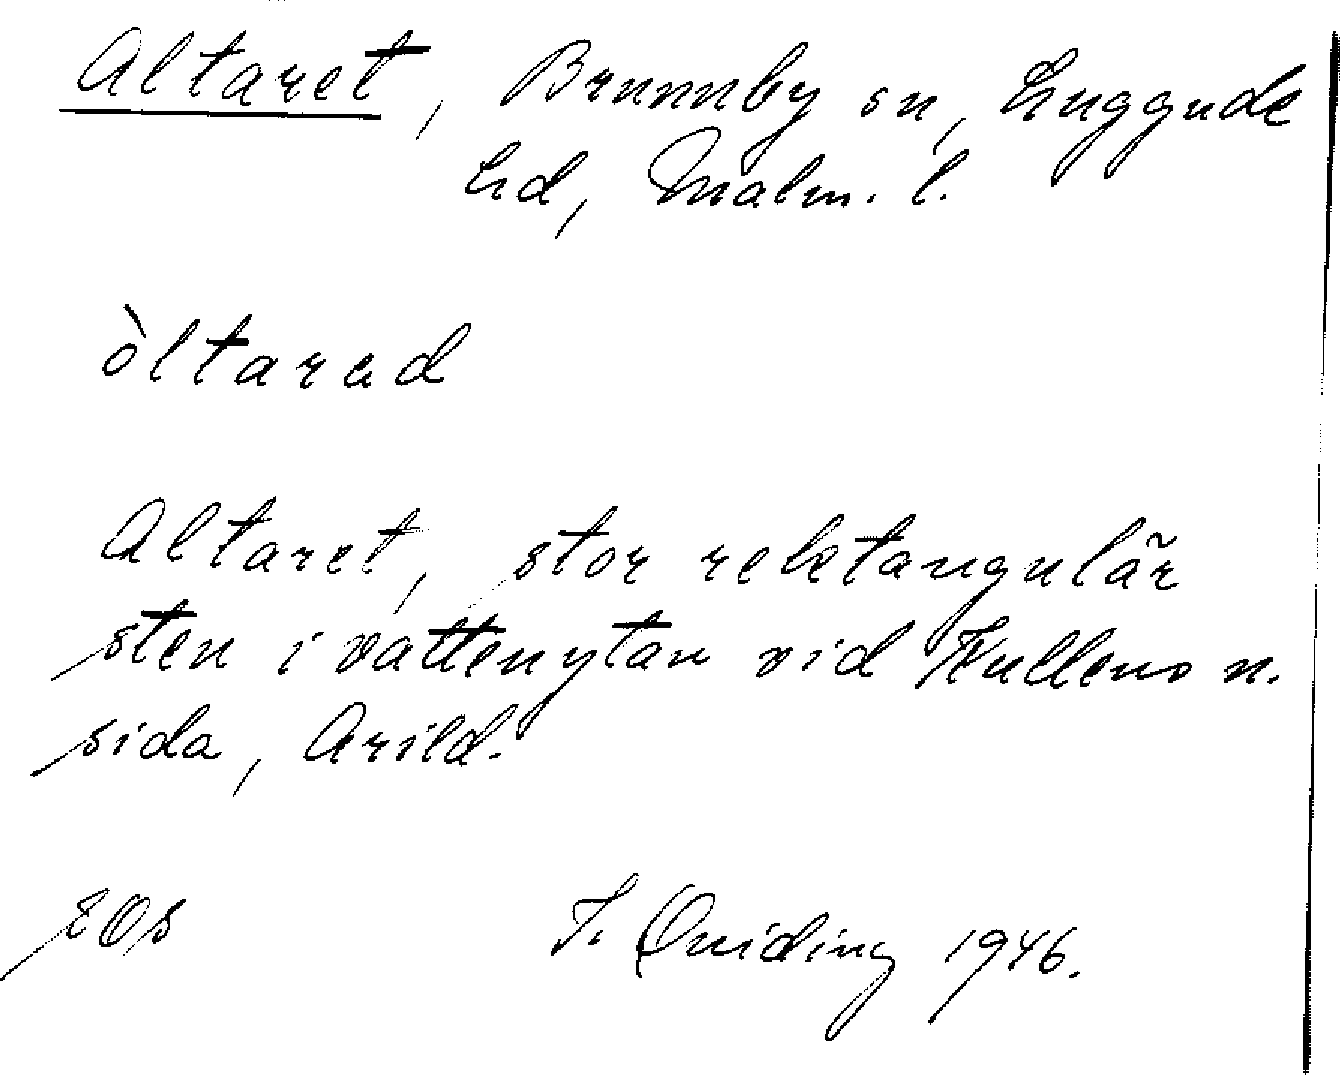 Altaret, Brunnby sn, Luggude
hd, Malm. l.
òltarad
Altaret, stor rektangulär
sten i vattenytan vid Kullens n.
sida, Arild.
Quiding 1946.